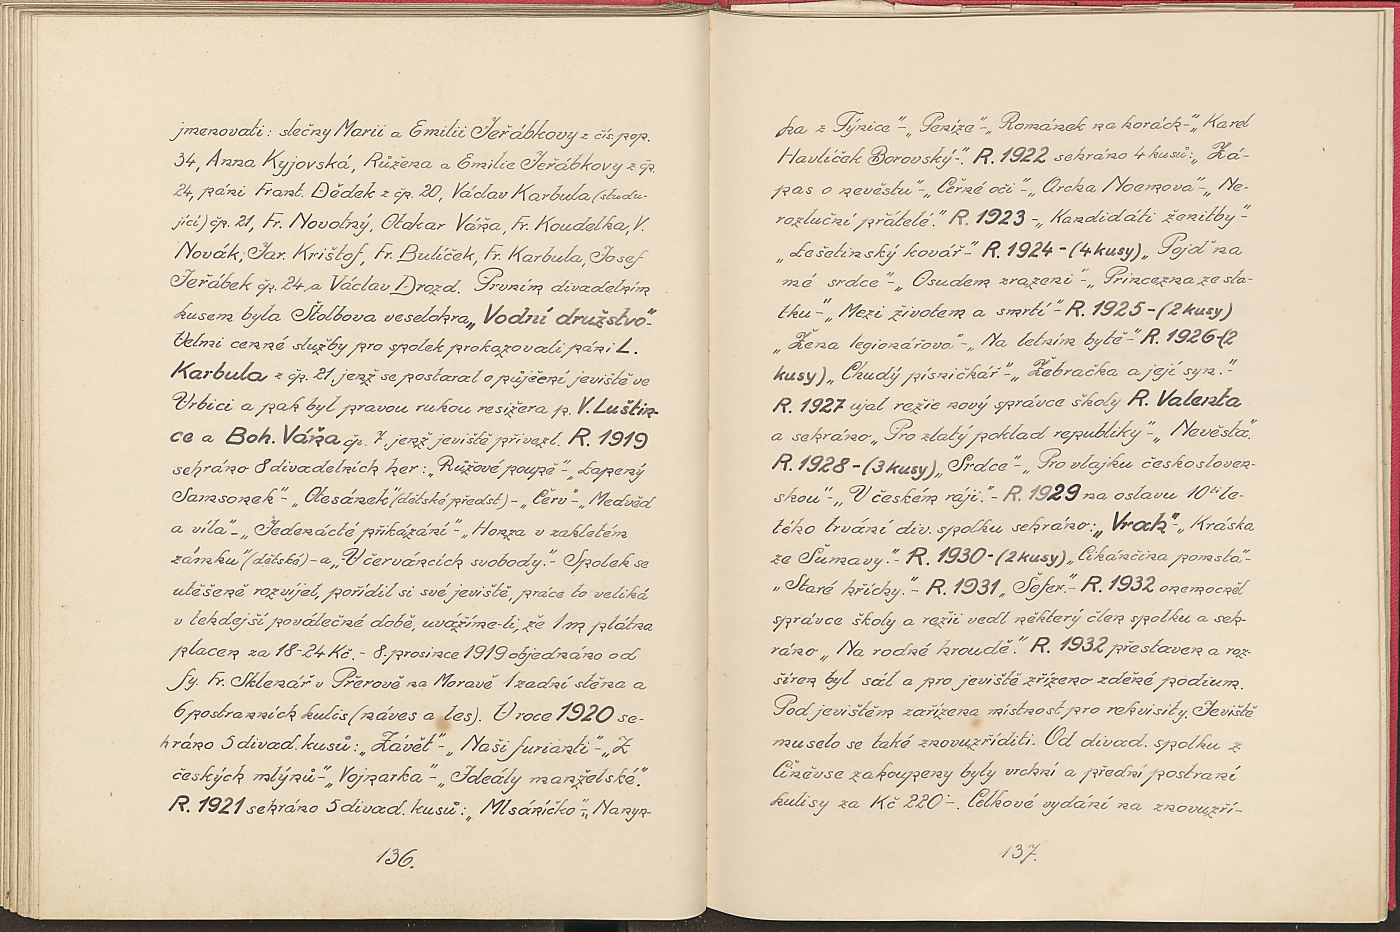 jmenovati: slečny Marii a Emilii Jeřábkovy z čís. pop.
34, Anna Kyjovská, Růžena a Emilie Jeřábkovy z čp.
24, páni Frant. Dědek z čp. 20, Václav Karbula (studu-
jící) čp. 21, Fr. Novotný, Otakar Váňa, Fr. Koudelka, V.
Novák, Jar. Krištof, Fr. Bulíček, Fr. Karbula, Josef
Jeřábek čp. 24 a Václav Drozd. Prvním divadelním
kusem byla Štolbova veselohra „Vodní družstvo“.
Velmi cenné služby pro spolek prokazovali páni L.
Karbula z čp. 21, jenž se postaral o půjčení jeviště ve
Vrbici a pak byl pravou rukou resižera p. V. Luštin-
ce a Boh. Váňa čp. 7, jenž jeviště přivezl. R. 1919
sehráno 8 divadelních her: „Růžové poupě“-„Lapený
Samsonek“-„Otesánek“ (dětské předst) -„Červ“-„Medvěd
a víla“-„Jedenácté přikázání“-„Honza v zakletém
zámku“ (dětské) - a „V červáncích svobody.“- Spolek se
utěšeně rozvíjel, pořídil si své jeviště, práce to veliká
v tehdejší poválečné době, uvážíme-li, že 1 m plátna
placen za 18-24 Kč. - 8. prosince 1919 objednáno od
fy. Fr. Sklenář v Přerově na Moravě 1 zadní stěna a
6 postranních kulis (náves a les). V roce 1920 se-
hráno 5 divad. kusů: „Závět“-„Naši furianti“-„Z
českých mlýnů“-„Vojnarka“-„Ideály manželské“.
R. 1921 sehráno 5 divad. kusů: „Mlsáníčko“-„Nanyn-
136.
ka z Týnice“-„Peníze“-„Románek na horách“-„Karel
Havlíček Borovský“-. R. 1922 sehráno 4 kusů: „Zá-
pas o nevěstu“-„Černé oči“-„Orcka Noemova“-„Ne-
rozluční přátelé.“ R. 1923 -„Kandidáti ženitby“-
„Lešetínský kovář“- R. 1924 - (4 kusy) „Pojď na
mé srdce“-„Osudem zrazeni“-„Princezna ze sta-
tku“-„Mezi životem a smrtí“- R. 1925 - (2 kusy)
„Žena legionářova“-„Na letním bytě“- R. 1926 - (2
kusy) „Chudý písničkář“-„Žebračka a její syn.“-
R. 1927 ujal režie nový správce školy R. Valenta
a sehráno „Pro zlatý poklad republiky“-„Nevěsta“.
R. 1928 - (3 kusy) „Srdce“-„Pro vlajku českosloven-
skou“-„V českém ráji.“- R. 1929 na oslavu 10ti le-
tého trvání div. spolku sehráno: „Vrah“-„Kráska
ze Šumavy.“- R. 1930 - (2 kusy) „Cikánčina pomsta“-
„Staré hříchy.“- R. 1931 „Šofér.“- R. 1932 onemocněl
správce školy a režii vedl některý člen spolku a seh-
ráno „Na rodné hroudě.“ R. 1932 přestaven a roz-
šířen byl sál a pro jeviště zřízeno zděné podium.
Pod jevištěm zařízena místnost pro rekvisity. Jeviště
muselo se také znovuzříditi. Od divad. spolku z
Činěvse zakoupeny byly vrchní a přední postraní
kulisy za Kč 220-. Celkové vydání na znovuzří-
137.